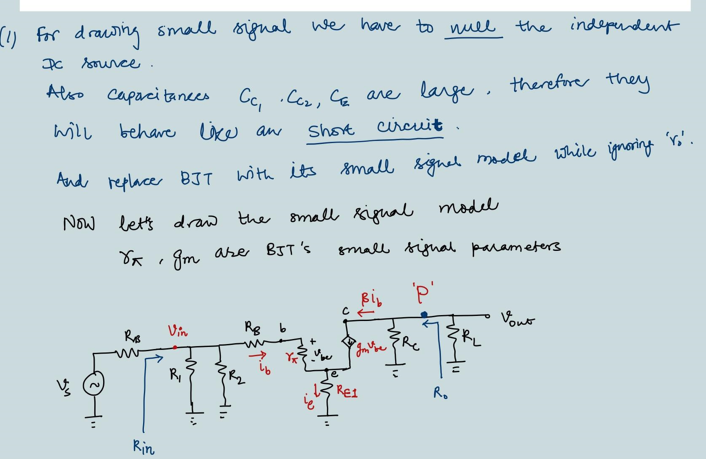 (1) For drawing small signal we have to null the independent
DC source.
Also capacitances Cc1, Cc2, CE are large, therefore they
will behave like an short circuit.
And replace BJT with its small signal model while ignoring 'ro'.
Now let's draw the small signal model
rπ, gm are BJT's small signal parameters
βib 'P'
c
Vout
RB Vin RB b
+
rπ vbe gmvbe RC RL
-
ib
R1 R2
e
Vs
ie RE1
Ro
Rin